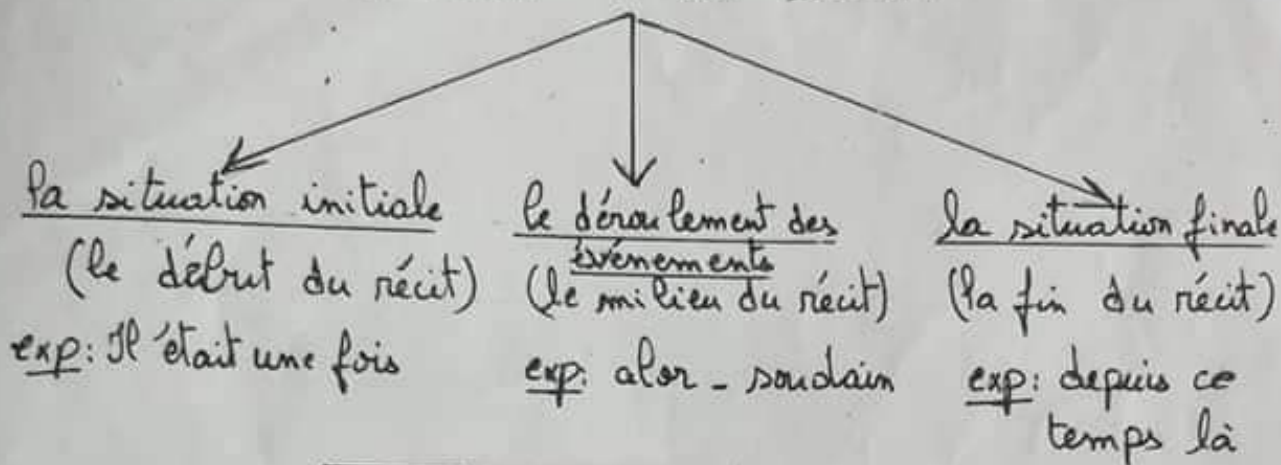 la situation initiale
(le début du récit)
exp: Il était une fois
le déroulement des
évènements
(le milieu du récit)
exp: alor - soudain
la situation finale
(la fin du récit)
exp: depuis ce
temps là